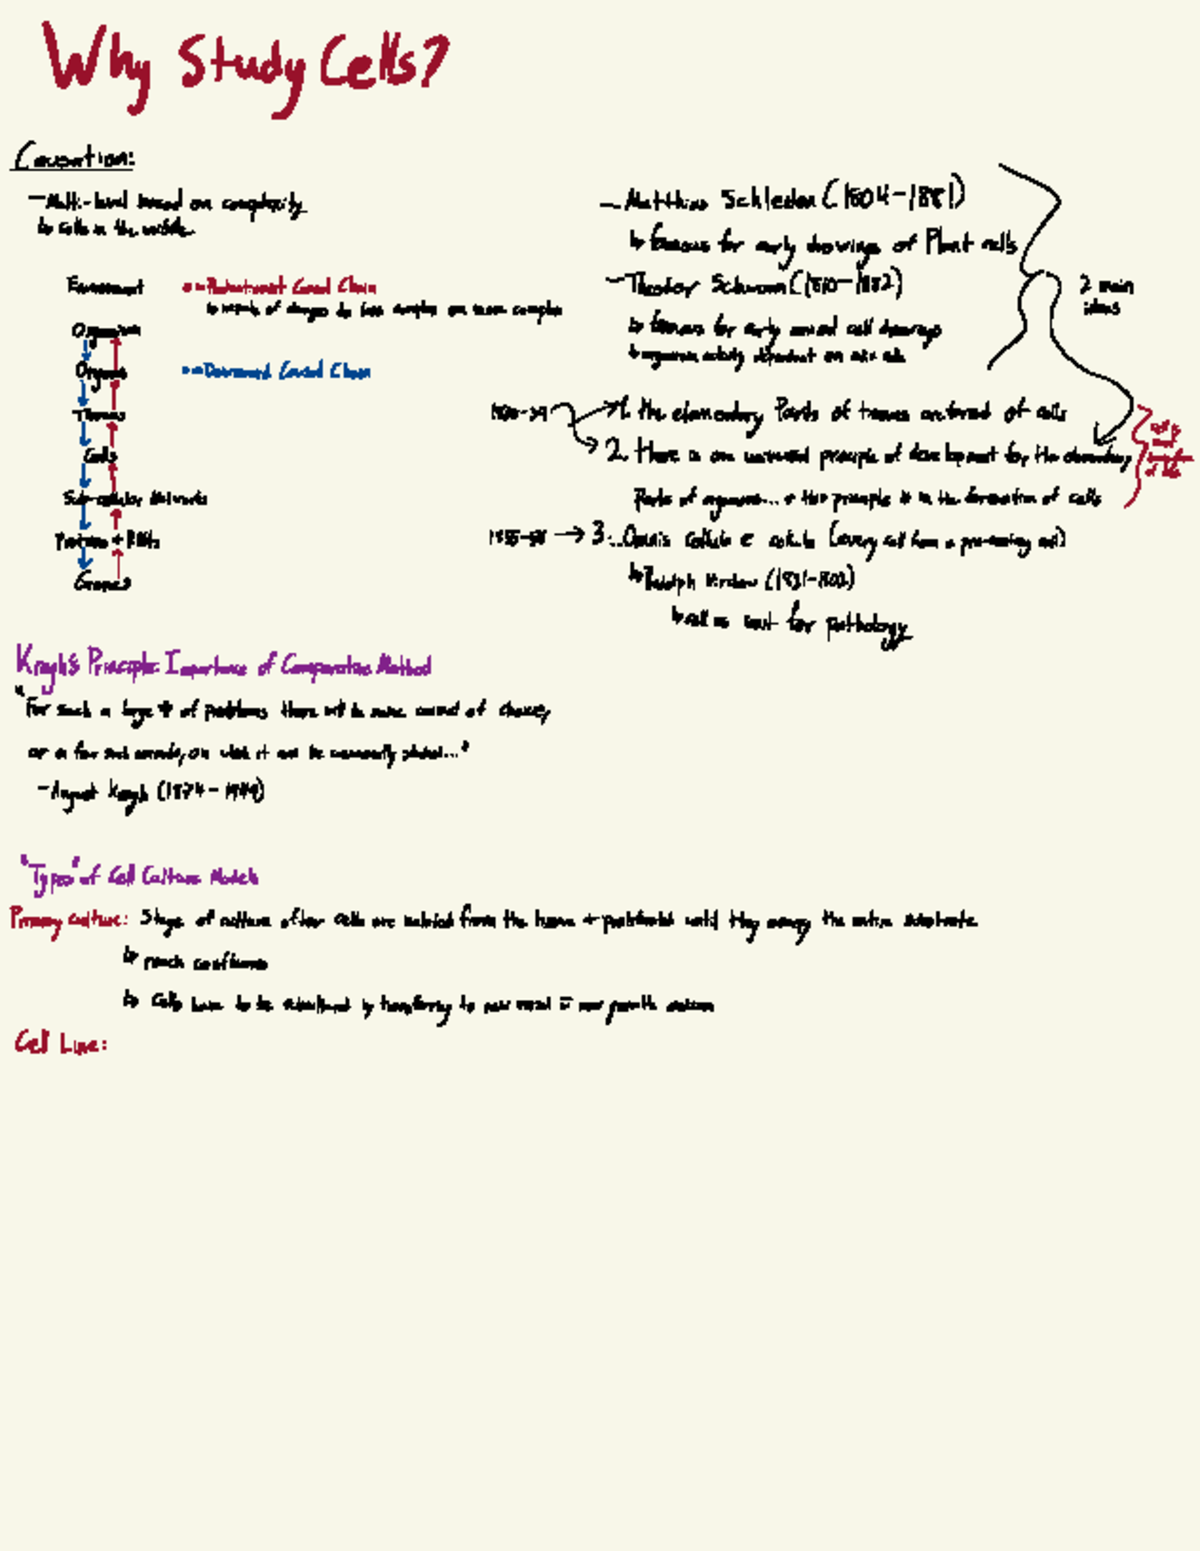 Why Study Cells?
Causation:
- Multi-level based on complexity
↳ cells in the middle
Environment
Organism
Organs
Tissues
Cells
Sub-cellular Networks
Proteins + RNAs
Genes
= Reductionist Causal Chain
↳ impacts of changes in less complex on more complex
= Downward Causal Chain
- Matthias Schleiden (1804-1881)
↳ famous for early drawings of Plant cells
- Theodor Schwann (1810-1882)
↳ famous for early animal cell drawings
↳ organism activity dependent on
2 main
ideas
1838-39
1. the elementary Parts of tissues are formed of cells
2. there is one universal principle of development for the elementary
Parts of organisms... + this principle is in the formation of cells
1855-58 → 3. ...Omnis cellula e cellula (every cell from a pre-existing cell)
↳ Rudolph Virchow (1821-1802)
↳ cell as unit for pathology
Krogh's Principle: Importance of Comparative Method
"For such a large # of problems there will be some animal of choice,
or a few such animals, on which it can be conveniently studied..."
- August Krogh (1874-1949)
"Types" of Cell Culture Models
Primary culture: Stage of culture after cells are isolated from the tissue + proliferated until they occupy the entire substrate
↳ reach confluence
↳ Cells have to be subcultured by transferring to new vessel c̄ new growth medium
Cell Line: